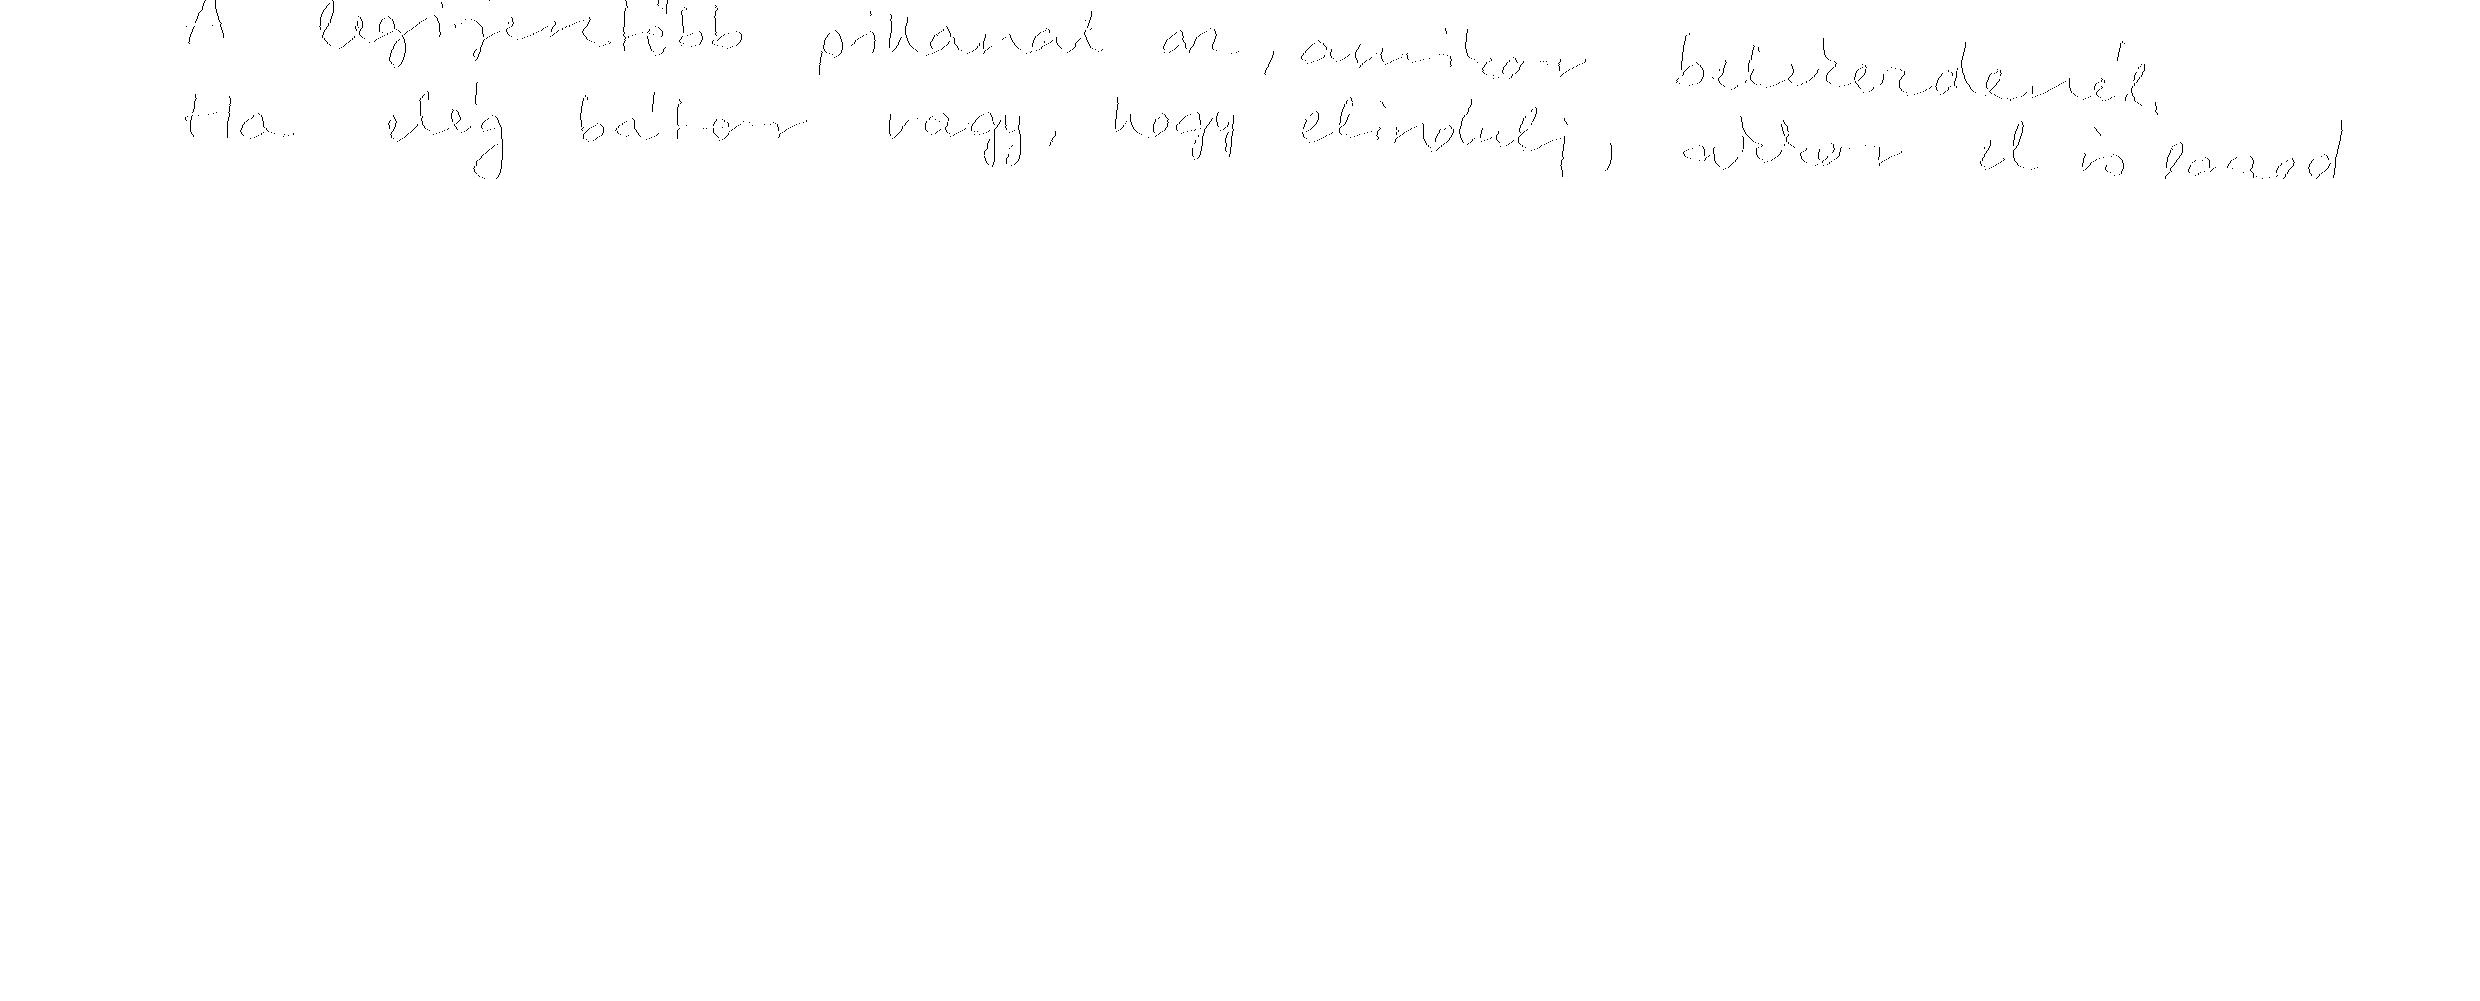 A legijesztőbb pillanat az, amikor belekezdenél.
Ha elég bátor vagy, hogy elindulj, akkor el is